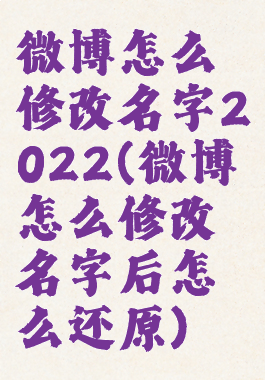 微博怎么
修改名字2
022(微博
怎么修改
名字后怎
么还原)